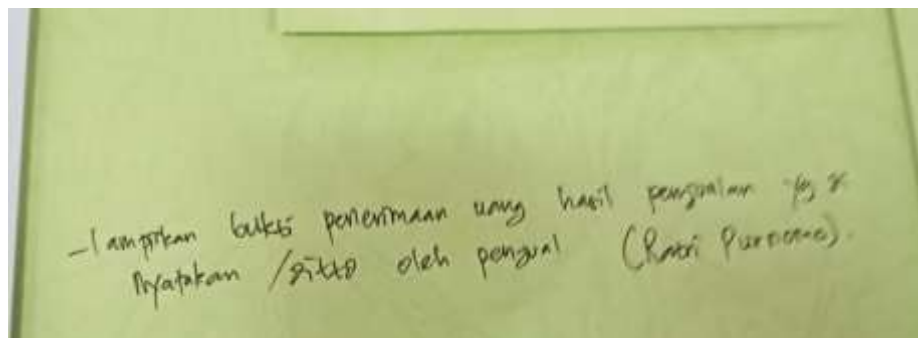 - lampirkan bukti penerimaan uang hasil penjualan yg di
nyatakan / ditto oleh penjual (Ratri Purnomo).